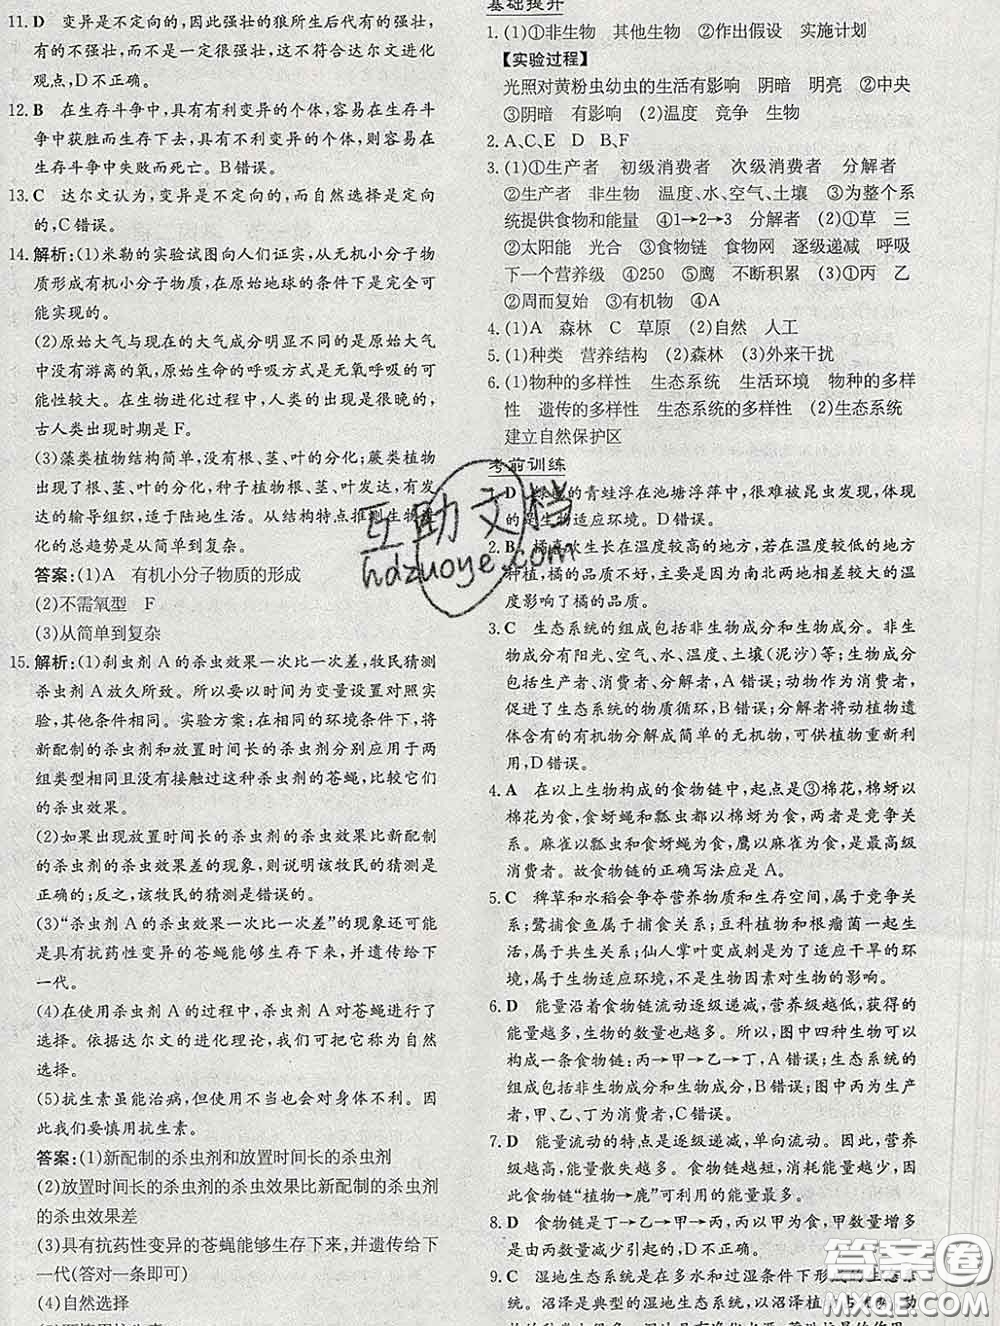 11. D 变异是不定向的,强壮的狼所生后代有的强壮,
有的不强壮,而不是一定很强壮,这不符合达尔文进化
观点,D不正确。
12. B 在生存斗争中,具有有利变异的个体,容易在生存斗
争中获胜而生存下去,具有不利变异的个体,则容易在
生存斗争中失败而死亡。B错误。
13. C 达尔文认为,变异是不定向的,而自然选择是定向
的,C错误。
14. 解析:(1)米勒的实验试图向人们证实,从无机小分子物
质形成有机小分子物质,在原始地球的条件下是完全可
能实现的。
(2)原始大气与现在的大气成分明显不同的是原始大气
中没有游离的氧,原始生命的呼吸方式是无氧呼吸的可
能性较大。在生物进化过程中,人类的出现是很晚的,
古人类出现时期是F。
(3)藻类植物结构简单,没有根、茎、叶的分化;蕨类植物
出现了根、茎、叶的分化,种子植物根、茎、叶发达,有发
达的输导组织,适于陆地生活。从结构特点推测生物进
化的总趋势是从简单到复杂。
答案:(1)A 有机小分子物质的形成
(2)不需氧型 F
(3)从简单到复杂
15. 解析:(1)刹虫剂A的杀虫效果一次比一次差,牧民猜测
杀虫剂A放久所致。所以要以时间为变量设置对照实
验,其他条件相同。实验方案:在相同的环境条件下,将
新配制的杀虫剂和放置时间长的杀虫剂分别应用于两
组类型相同且没有接触过这种杀虫剂的苍蝇,比较它们
的杀虫效果。
(2)如果出现放置时间长的杀虫剂的杀虫效果比新配制
的杀虫剂的杀虫效果差的现象,则说明该牧民的猜测是
正确的;反之,该牧民的猜测是错误的。
(3)“杀虫剂A的杀虫效果一次比一次差”的现象还可能
是具有抗药性变异的苍蝇能够生存下来,并遗传给下
一代。
(4)在使用杀虫剂A的过程中,杀虫剂A对苍蝇进行了
选择。依据达尔文的进化理论,我们可把它称为自然
选择。
(5)抗生素虽能治病,但使用不当也会对身体不利。因
此我们要慎用抗生素。
答案:(1)新配制的杀虫剂和放置时间长的杀虫剂
(2)放置时间长的杀虫剂的杀虫效果比新配制的杀虫剂
的杀虫效果差
(3)具有抗药性变异的苍蝇能够生存下来,并遗传给下
一代(答对一条即可)
(4)自然选择
基础提升
1. (1)①非生物 其他生物 ②作出假设 实施计划
【实验过程】
光照对黄粉虫幼虫的生活有影响 阴暗 明亮 ②中央
③阴暗 有影响 (2)温度 竞争 生物
2. A、C、E D B、F
3. (1)①生产者 初级消费者 次级消费者 分解者
②生产者 非生物 温度、水、空气、土壤 ③为整个系
统提供食物和能量 ④1→2→3 分解者 (2)①草 三
②太阳能 光合 ③食物链 食物网 逐级递减 呼吸
下一个营养级 ④250 ⑤鹰 不断积累 (3)①丙 乙
②周而复始 ③有机物 ④A
4. (1)A 森林 C 草原 (2)自然 人工
5. (1)种类 营养结构 (2)森林 (3)外来干扰
6. (1)物种的多样性 生态系统 生活环境 物种的多样
性 遗传的多样性 生态系统的多样性 (2)生态系统
建立自然保护区
考前训练
1. D 绿色的青蛙浮在池塘浮萍中,很难被昆虫发现,体现
的是生物适应环境。D错误。
2. B 橘喜欢生长在温度较高的地方,若在温度较低的地方
种植,橘的品质不好,主要是因为南北两地环境中的温
度影响了橘的品质。
3. C 生态系统的组成包括非生物成分和生物成分。非生
物成分有阳光、空气、水、温度、土壤(泥沙)等;生物成分
包括生产者、消费者、分解者,A错误;动物作为消费者,
促进了生态系统的物质循环,B错误;分解者将动植物遗
体含有的有机物分解成简单的无机物,可供植物重新利
用,D错误。
4. A 在以上生物构成的食物链中,起点是③棉花,棉蚜以
棉花为食,食蚜蝇和瓢虫都以棉蚜为食,两者是竞争关
系。麻雀以瓢虫和食蚜蝇为食,鹰以麻雀为食,是最高级
消费者。故食物链的正确写法应是A。
5. C 稗草和水稻会争夺营养物质和生存空间,属于竞争关
系;鹭捕食鱼属于捕食关系;豆科植物和根瘤菌一起生
活,属于共生关系;仙人掌叶变成刺是为了适应干旱的环
境,属于生物适应环境,不是生物因素对生物的影响。
6. D 能量沿着食物链流动逐级递减,营养级越低,获得的
能量越多,生物的数量也越多。所以,图中四种生物可以
构成一条食物链:丙→甲→乙→丁,A错误;生态系统的
组成包括非生物成分和生物成分,B错误;图中丙为生产
者,甲、乙、丁为消费者,C错误。
7. D 能量流动的特点是逐级递减,单向流动。因此,营养
级越高,能量散失越多。食物链越短,消耗能量越少,因
此食物链“植物→鹿”可利用的能量最多。
8. D 食物链是丁→乙→甲→丙,丙以甲为食,甲数量增多
是由丙数量减少引起的,D不正确。
9. C 湿地生态系统是在多水和过湿条件下形成的生态系
统。沼泽是典型的湿地生态系统,以沼泽植
互助文档
hdzuoye.com
答案圈
MXQE.COM